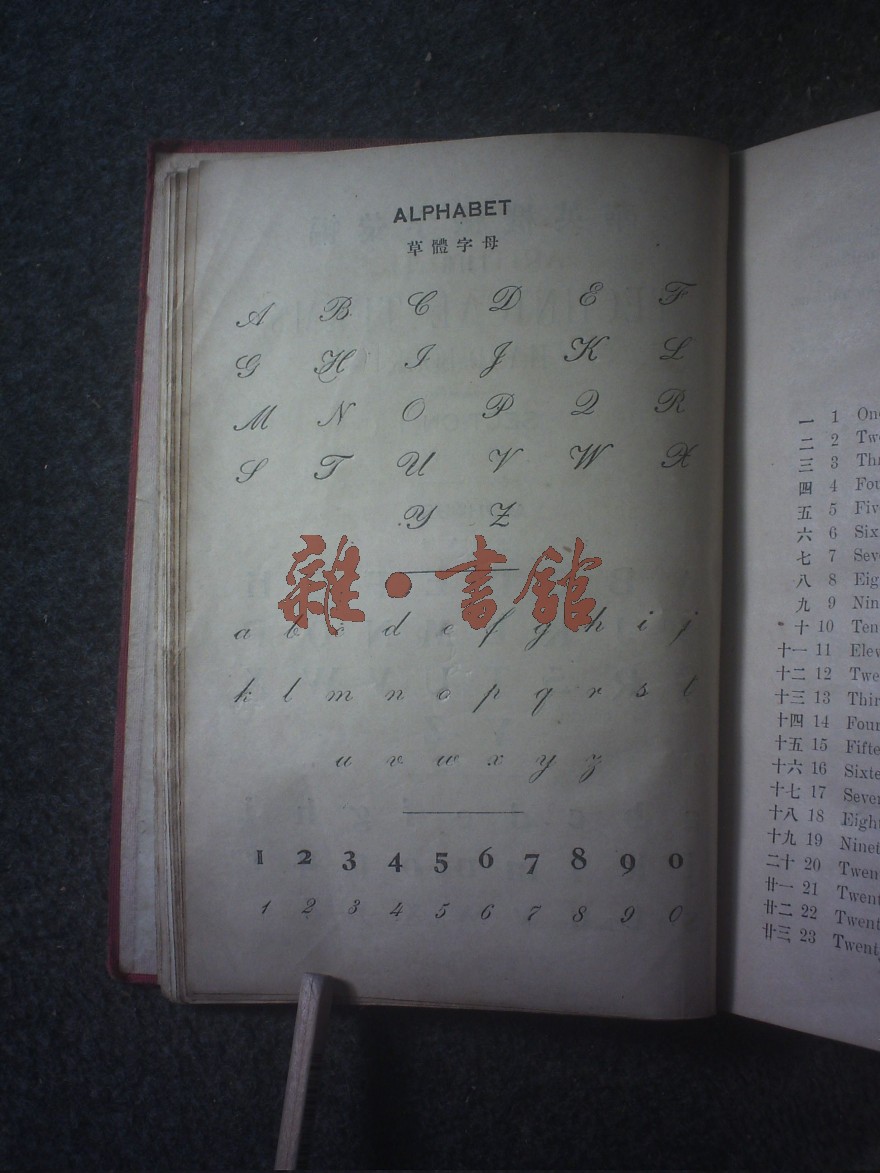 ALPHABET
草體字母
A B C D E F
G H I J K L
M N O P Q R
S T U V W X
Y Z
雜·書館
a b c d e f g h i j
k l m n o p q r s t
u v w x y z
1 2 3 4 5 6 7 8 9 0
1 2 3 4 5 6 7 8 9 0
一 1 On
二 2 Tw
三 3 Th
四 4 Fou
五 5 Fiv
六 6 Six
七 7 Sev
八 8 Eig
九 9 Nin
十 10 Ten
十一 11 Elev
十二 12 Twe
十三 13 Thir
十四 14 Four
十五 15 Fifte
十六 16 Sixte
十七 17 Seve
十八 18 Eight
十九 19 Ninet
二十 20 Twen
廿一 21 Twent
廿二 22 Twent
廿三 23 Twenty